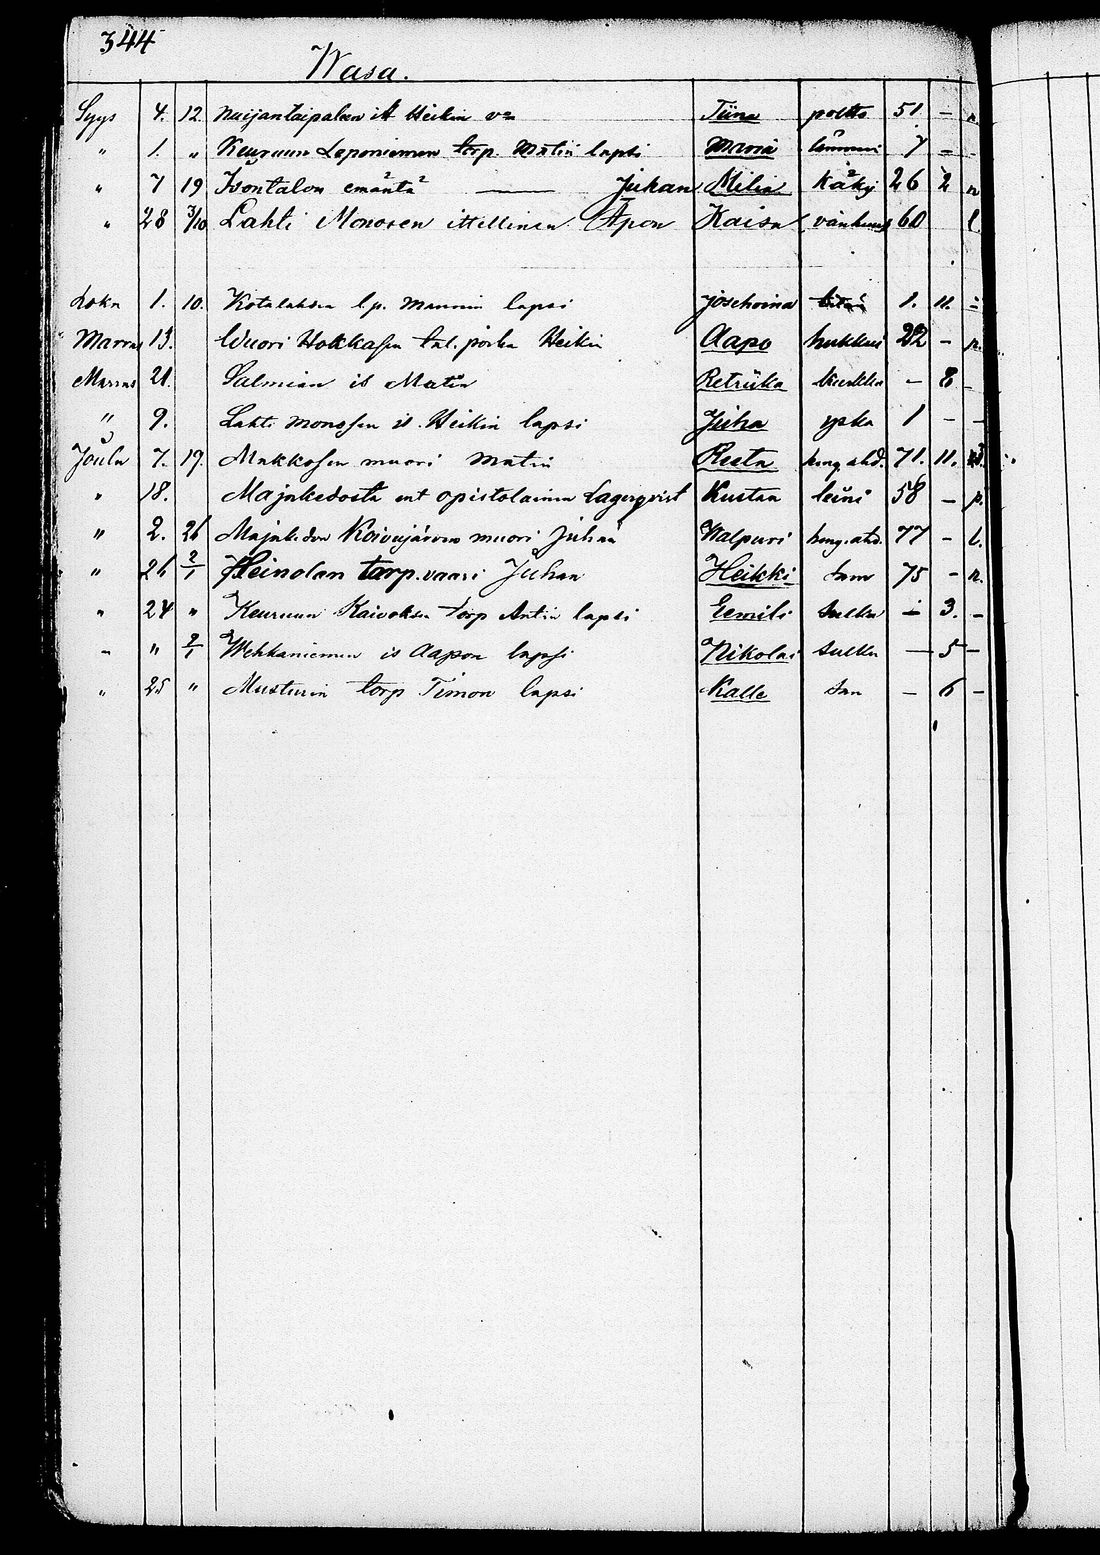 344
Wasa.
Syys 4. 12. Naijantaipaleen it Heikin Tiina poltto 51 - n.
" 1. " Keuruun Leponiemen torp. Matin lapsi Maria 7 - -
" 7 19 Isontalon emäntä — Juhan Milia Käky 26 2 n
" 28 3/10 Lahti Monosen ittellinen Apon Kaisa vanhuus 60 l.
Loka 1. 10. Kotalahden l.p. Mannin lapsi Joschvina 1. 11. -
Marras 13. Wuori Hokkasen tal. poika Heikin Aapo hukkui 22 - p.
Marras 21. Salmian it Matin Retriika kurkku - 8 -
" 9. Lahti Monosen it. Heikin lapsi Juha yskä 1 - -
Joulu 7. 19. Makkosen muori Matin Reeta heng.ahd. 71. 11.
" 18. Majakedosta ent opistolainen Lagerqvist Kustaa leini 58 - p.
" 2. 26 Majakedon Koivujärven muori Juhan Walpuri heng.ahd. 77 - l.
" 26 2/1 Heinolan torp. vaari Juhan Heikki sam 75 - n.
" 24 " Keuruun Kaivoksen torp Antin lapsi Eemili tulku - 3. -
- " 2/1 Wehkaniemen it Aapon lapsi Nikolai tulku - 5 -
" 25 " Musturin torp Timon lapsi Kalle sam - 6 -